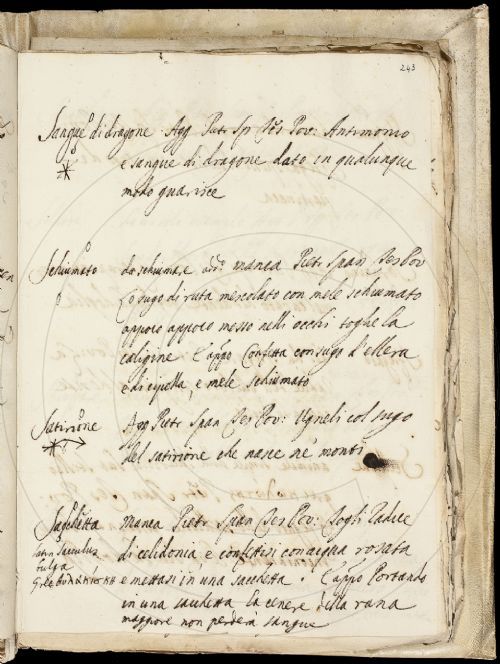 243
Sangue di dragone Agg Pietr Sp Tes Pov: Antimonio
e sangue di dragone dato in qualunque
modo guarisce
Schiumato da schiumare add: manca Pietr Span Tes Pov
Lo sugo di ruta mescolato con mele schiumato
appoco appoco messo nelli occhi toglie la
caligine. Cappo Confetta con sugo d'ellera
e di cipolla, e mele schiumato
Satirione Agg Pietr Span Tes Pov: Ugneli col sugo
del satirione che nasce ne' monti
Sacchetta manca Pietr Span Tes Pov: Togli radice
di celidonia, e confettisi con acqua rosata
latin Sacculus
bulga
e mettasi in una sacchetta. Cappo Portando
in una sacchetta la cenere della rana
maggiore non perderà sangue